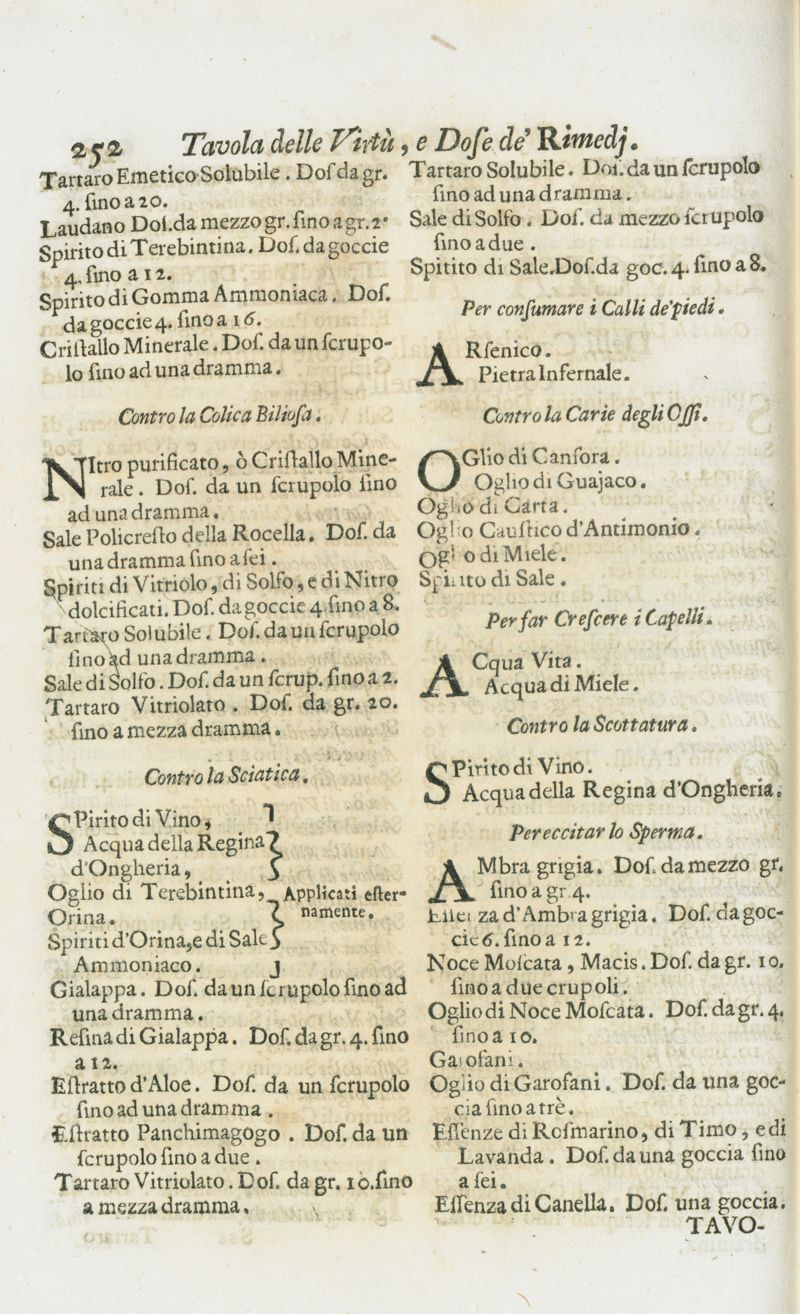 252 Tavola delle Virtù, e Dose de' Rimedj.
Tartaro Emetico Solubile. Dos da gr.
4. sino a 20.
Laudano Dos. da mezzo gr. sino a gr. 2.
Spirito di Terebintina. Dos. da goccie
4. sino a 12.
Spirito di Gomma Ammoniaca. Dos.
da goccie 4. sino a 16.
Cristallo Minerale. Dos. da un scrupo-
lo sino ad una dramma.
Contro la Colica Biliosa.
NItro purificato, ò Cristallo Mine-
rale. Dos. da un scrupolo sino
ad una dramma.
Sale Policresto della Rocella. Dos. da
una dramma sino a sei.
Spiriti di Vitriolo, di Solfo, e di Nitro
dolcificati. Dos. da goccie 4. sino a 8.
Tartaro Solubile. Dos. da un scrupolo
sino ad una dramma.
Sale di Solfo. Dos. da un scrup. sino a 2.
Tartaro Vitriolato. Dos. da gr. 20.
sino a mezza dramma.
Contro la Sciatica.
SPirito di Vino,
Acqua della Regina
d'Ongheria,
Oglio di Terebintina, Applicati ester-
Orina. namente.
Spiriti d'Orina, e di Sale
Ammoniaco.
Gialappa. Dos. da un scrupolo sino ad
una dramma.
Resina di Gialappa. Dos. da gr. 4. sino
a 12.
Estratto d'Aloe. Dos. da un scrupolo
sino ad una dramma.
Estratto Panchimagogo. Dos. da un
scrupolo sino a due.
Tartaro Vitriolato. Dos. da gr. 10. sino
a mezza dramma.
Tartaro Solubile. Dos. da un scrupolo
sino ad una dramma.
Sale di Solfo. Dos. da mezzo scrupolo
sino a due.
Spitito di Sale. Dos. da goc. 4. sino a 8.
Per consumare i Calli de' piedi.
ARsenico.
Pietra Infernale.
Contro la Carie degli Ossi.
OGlio di Canfora.
Oglio di Guajaco.
Oglio di Carta.
Oglio Caustico d'Antimonio.
Oglio di Miele.
Spirito di Sale.
Per far Crescere i Capelli.
ACqua Vita.
Acqua di Miele.
Contro la Scottatura.
SPirito di Vino.
Acqua della Regina d'Ongheria.
Per eccitar lo Sperma.
AMbra grigia. Dos. da mezzo gr.
sino a gr. 4.
Essenza d'Ambra grigia. Dos. da goc-
cie 6. sino a 12.
Noce Moscata, Macis. Dos. da gr. 10.
sino a due crupoli.
Oglio di Noce Moscata. Dos. da gr. 4.
sino a 10.
Garofani.
Oglio di Garofani. Dos. da una goc-
cia sino a trè.
Essenze di Rosmarino, di Timo, e di
Lavanda. Dos. da una goccia sino
a sei.
Essenza di Canella. Dos. una goccia.
TAVO-